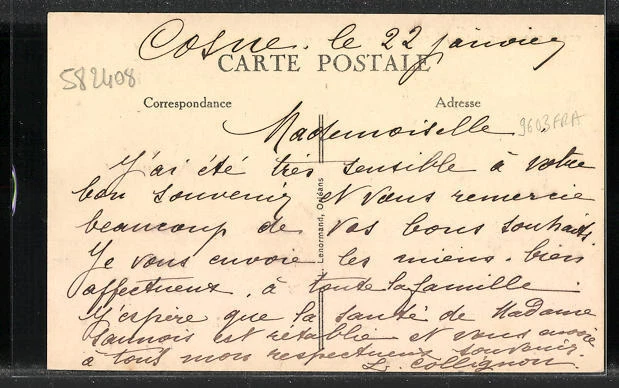 Cosne. le 22 janvier
CARTE POSTALE
582408
Correspondance
Adresse
9603FRA
Mademoiselle.
J'ai été très sensible à votre
bon souvenir et vous remercie
beaucoup de vos bons souhaits.
Je vous envoie les miens. bien
affectueux, à toute la famille.
J'espère que la santé de Madame
est rétablie et vous
à tous mon respectueux souvenir.
L. Collignon.
Lenormand, Orléans